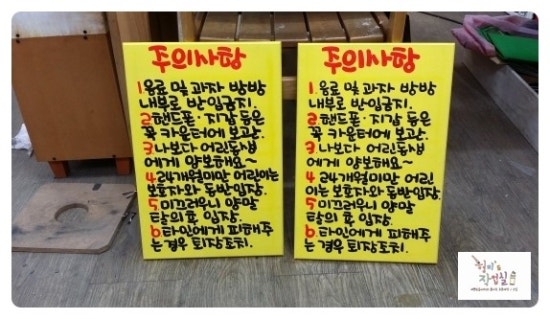 주의사항
1. 음료 및 과자 방방
내부로 반입금지.
2. 핸드폰·지갑 등은
꼭 카운터에 보관.
3. 나보다 어린동생
에게 양보해요~
4. 24개월미만 어린이는
보호자와 동반입장.
5 미끄러우니 양말
탈의 후 입장.
6 타인에게 피해주
는경우 퇴장조치.
주의사항
1. 음료 및 과자 방방
내부로 반입금지.
2. 핸드폰·지갑 등은
꼭 카운터에 보관.
3. 나보다 어린동생
에게 양보해요~
4 24개월미만 어린
이는 보호자와 동반입장.
5 미끄러우니 양말
탈의 후 입장.
6 타인에게 피해주
는 경우 퇴장조치.
작업실